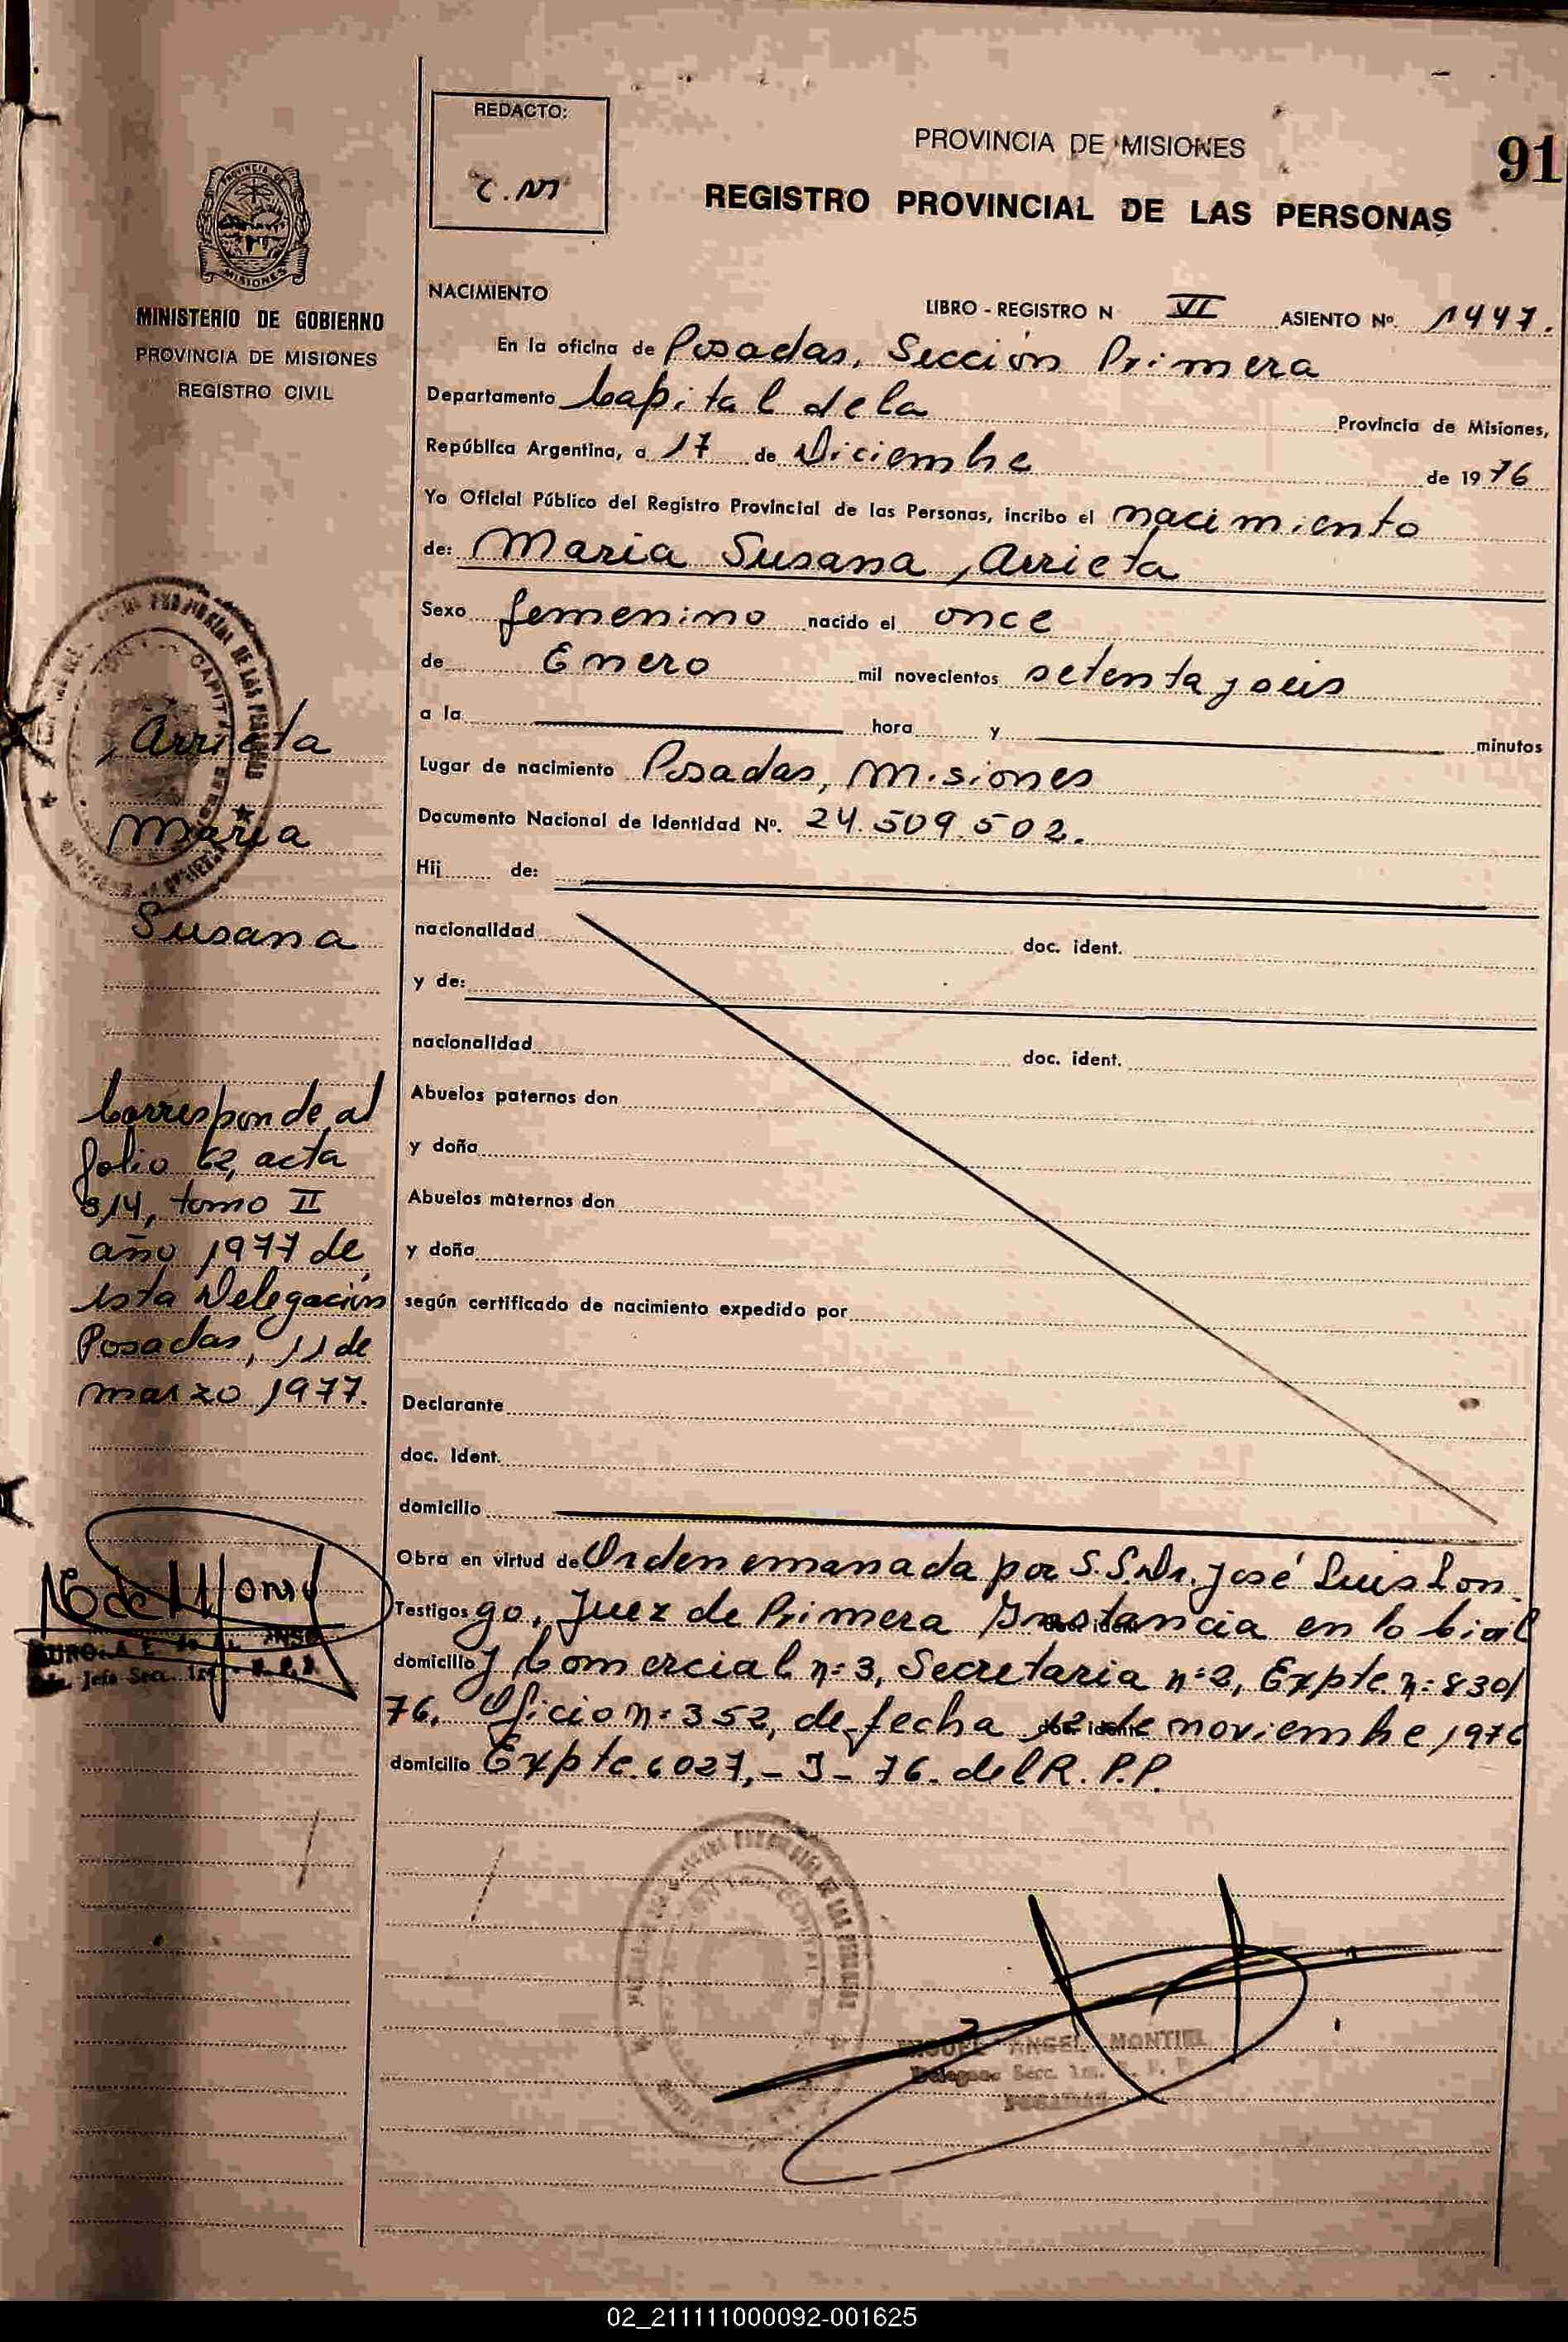 REDACTO:
C.M
PROVINCIA DE MISIONES
91
REGISTRO PROVINCIAL DE LAS PERSONAS
PROVINCIA DE
MISIONES
MINISTERIO DE GOBIERNO
PROVINCIA DE MISIONES
REGISTRO CIVIL
NACIMIENTO
LIBRO - REGISTRO N VI ASIENTO Nº. 1447.
En la oficina de Posadas, Sección Primera
Departamento Capital de la Provincia de Misiones,
República Argentina, a 17 de Diciembre de 1976
Yo Oficial Público del Registro Provincial de las Personas, incribo el nacimiento
de: Maria Susana, Arrieta
Sexo femenino nacido el once
de Enero mil novecientos setenta y seis
a la hora y minutos
Lugar de nacimiento Posadas, Misiones
Documento Nacional de Identidad Nº. 24.509.502.
Hij de:
nacionalidad doc. ident.
y de:
nacionalidad doc. ident.
Abuelos paternos don
y doña
Abuelos maternos don
y doña
según certificado de nacimiento expedido por
Declarante
doc. Ident.
domicilio
Obra en virtud de Orden emanada por S.S. Dr. José Luis Lon
Testigos go, Juez de Primera Instancia en lo Civil
domicilio y Comercial n: 3, Secretaria nº 2, Expte. n: 830/
76. Oficio n: 352, de fecha 12 de noviembre 1976
domicilio Expte. 6027,- J - 76. del R. P.P.
, Arrieta
Maria
Susana
Corresponde al
folio 62, acta
314, tomo II
año 1977 de
esta Delegación
Posadas, 11 de
marzo 1977.
MIGUEL ANGEL MONTIEL
Delegado Secc. 1a. R. P. P.
POSADAS
02_211111000092-001625